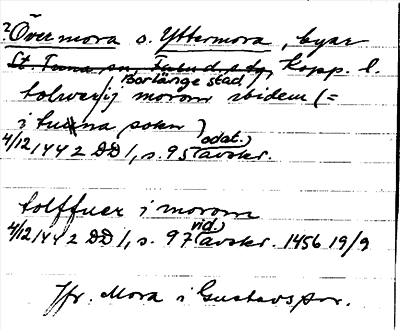 ?Övermora o. Yttermora, byar
St. Tuna sn, Falund. s. dg, Kopp. l.
Borlänge stad,
tolwerij morom ibidem (=
i tuna soken)
4/12 1442 DD 1, s. 95 (odat.) avskr.
tolffuer i morom
4/12 1442 DD 1, s. 97 (vid.) avskr. 1456 19/9
Jfr. Mora i Gustavs sn.